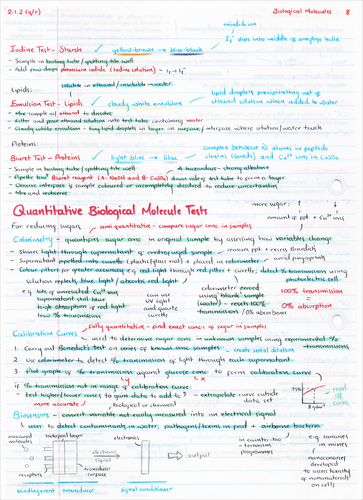 2.1.2 (q/r)
Biological Molecules 8
Iodine Test - Starch
yellow-brown → blue-black
- Sample in boiling tube/spotting tile well
- Add few drops potassium iodide (iodine solution)
I3- slips into middle of amylose helix
Lipids:
soluble in ethanol/insoluble in water
Emulsion Test - Lipids
cloudy white emulsion
lipid droplets precipitating out of
ethanol solution when added to water
- Mix sample w/ ethanol to dissolve
- Filter and pour ethanol solution into test tube containing water
- Cloudy white emulsion - tiny lipid droplets in layer on surface/interface where solution/water touch
Proteins:
Biuret Test - Proteins
light blue → lilac
complex between N atoms in peptide
chains (bonds) and Cu2+ ions in CuSO4
- Sample in boiling tube/spotting tile well
hazardous - strong alkaline
- Pipette Biuret reagent (A - NaOH and B - CuSO4) down side of test tube to form a layer
- Observe interface if sample coloured or incompletely dissolved to reduce uncertainties
- Mix and reobserve
Quantitative Biological Molecule Tests
For reducing sugars
semi quantitative - compare sugar conc. in samples
amount of ppt = Cu2+ ions
Colorimetry - quantifies sugar conc. in original sample by assessing how variables change
- Shines light through supernatant of centrifuged sample
remove ppt + excess Benedict's
- Supernatant pipetted into cuvette (plastic/glass/mol) + placed in colorimeter
avoid fingerprints
- Colour filters for greater accuracy e.g. red light through red filter + cuvette; detect % transmission using
solution reflects blue light/absorbs red light
photoelectric cell
e.g. lots of unreacted Cu2+ ions
supernatant still blue
high absorption of red light
low % transmission
can use
UV light
and quartz
cuvette
colorimeter zeroed
using 'blank' sample
(water) - reads 100%
transmission / 0% absorbance
100% transmission
=
0% absorption
Calibration Curves
fully quantitative - find exact conc. of sugar in samples
- used to determine sugar conc. in unknown samples using experimental %
transmissions
1. Carry out Benedict's Test on series of known conc. samples
serial dilution
2. Use colorimeter to detect % transmission of light through each supernatant
3. Plot graph of % transmission against glucose conc. to form calibration curve
y
x
if % transmission not in range of calibration curve:
- test higher/lower conc. to gain data to add to
more accurate
- extrapolate curve outside
data set
75%
read
off
curve
Biosensors - convert variable not easily measured into an electrical signal
biological or chemical
uses: to detect contaminants in water, pathogens/toxins in food + airborne bacteria
measured
molecules
biological layer
electronics
receptors
transducer
surface
electrical
signal
output
binding event
transducer
signal conditioner
in counter-bio
- terrorism
programmes
e.g. canaries
in mines
nanocanaries
developed
to assess toxicity
of nanomaterials
on cells